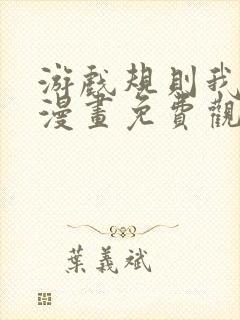 游戲規則我
漫畫免費觀
葉義斌